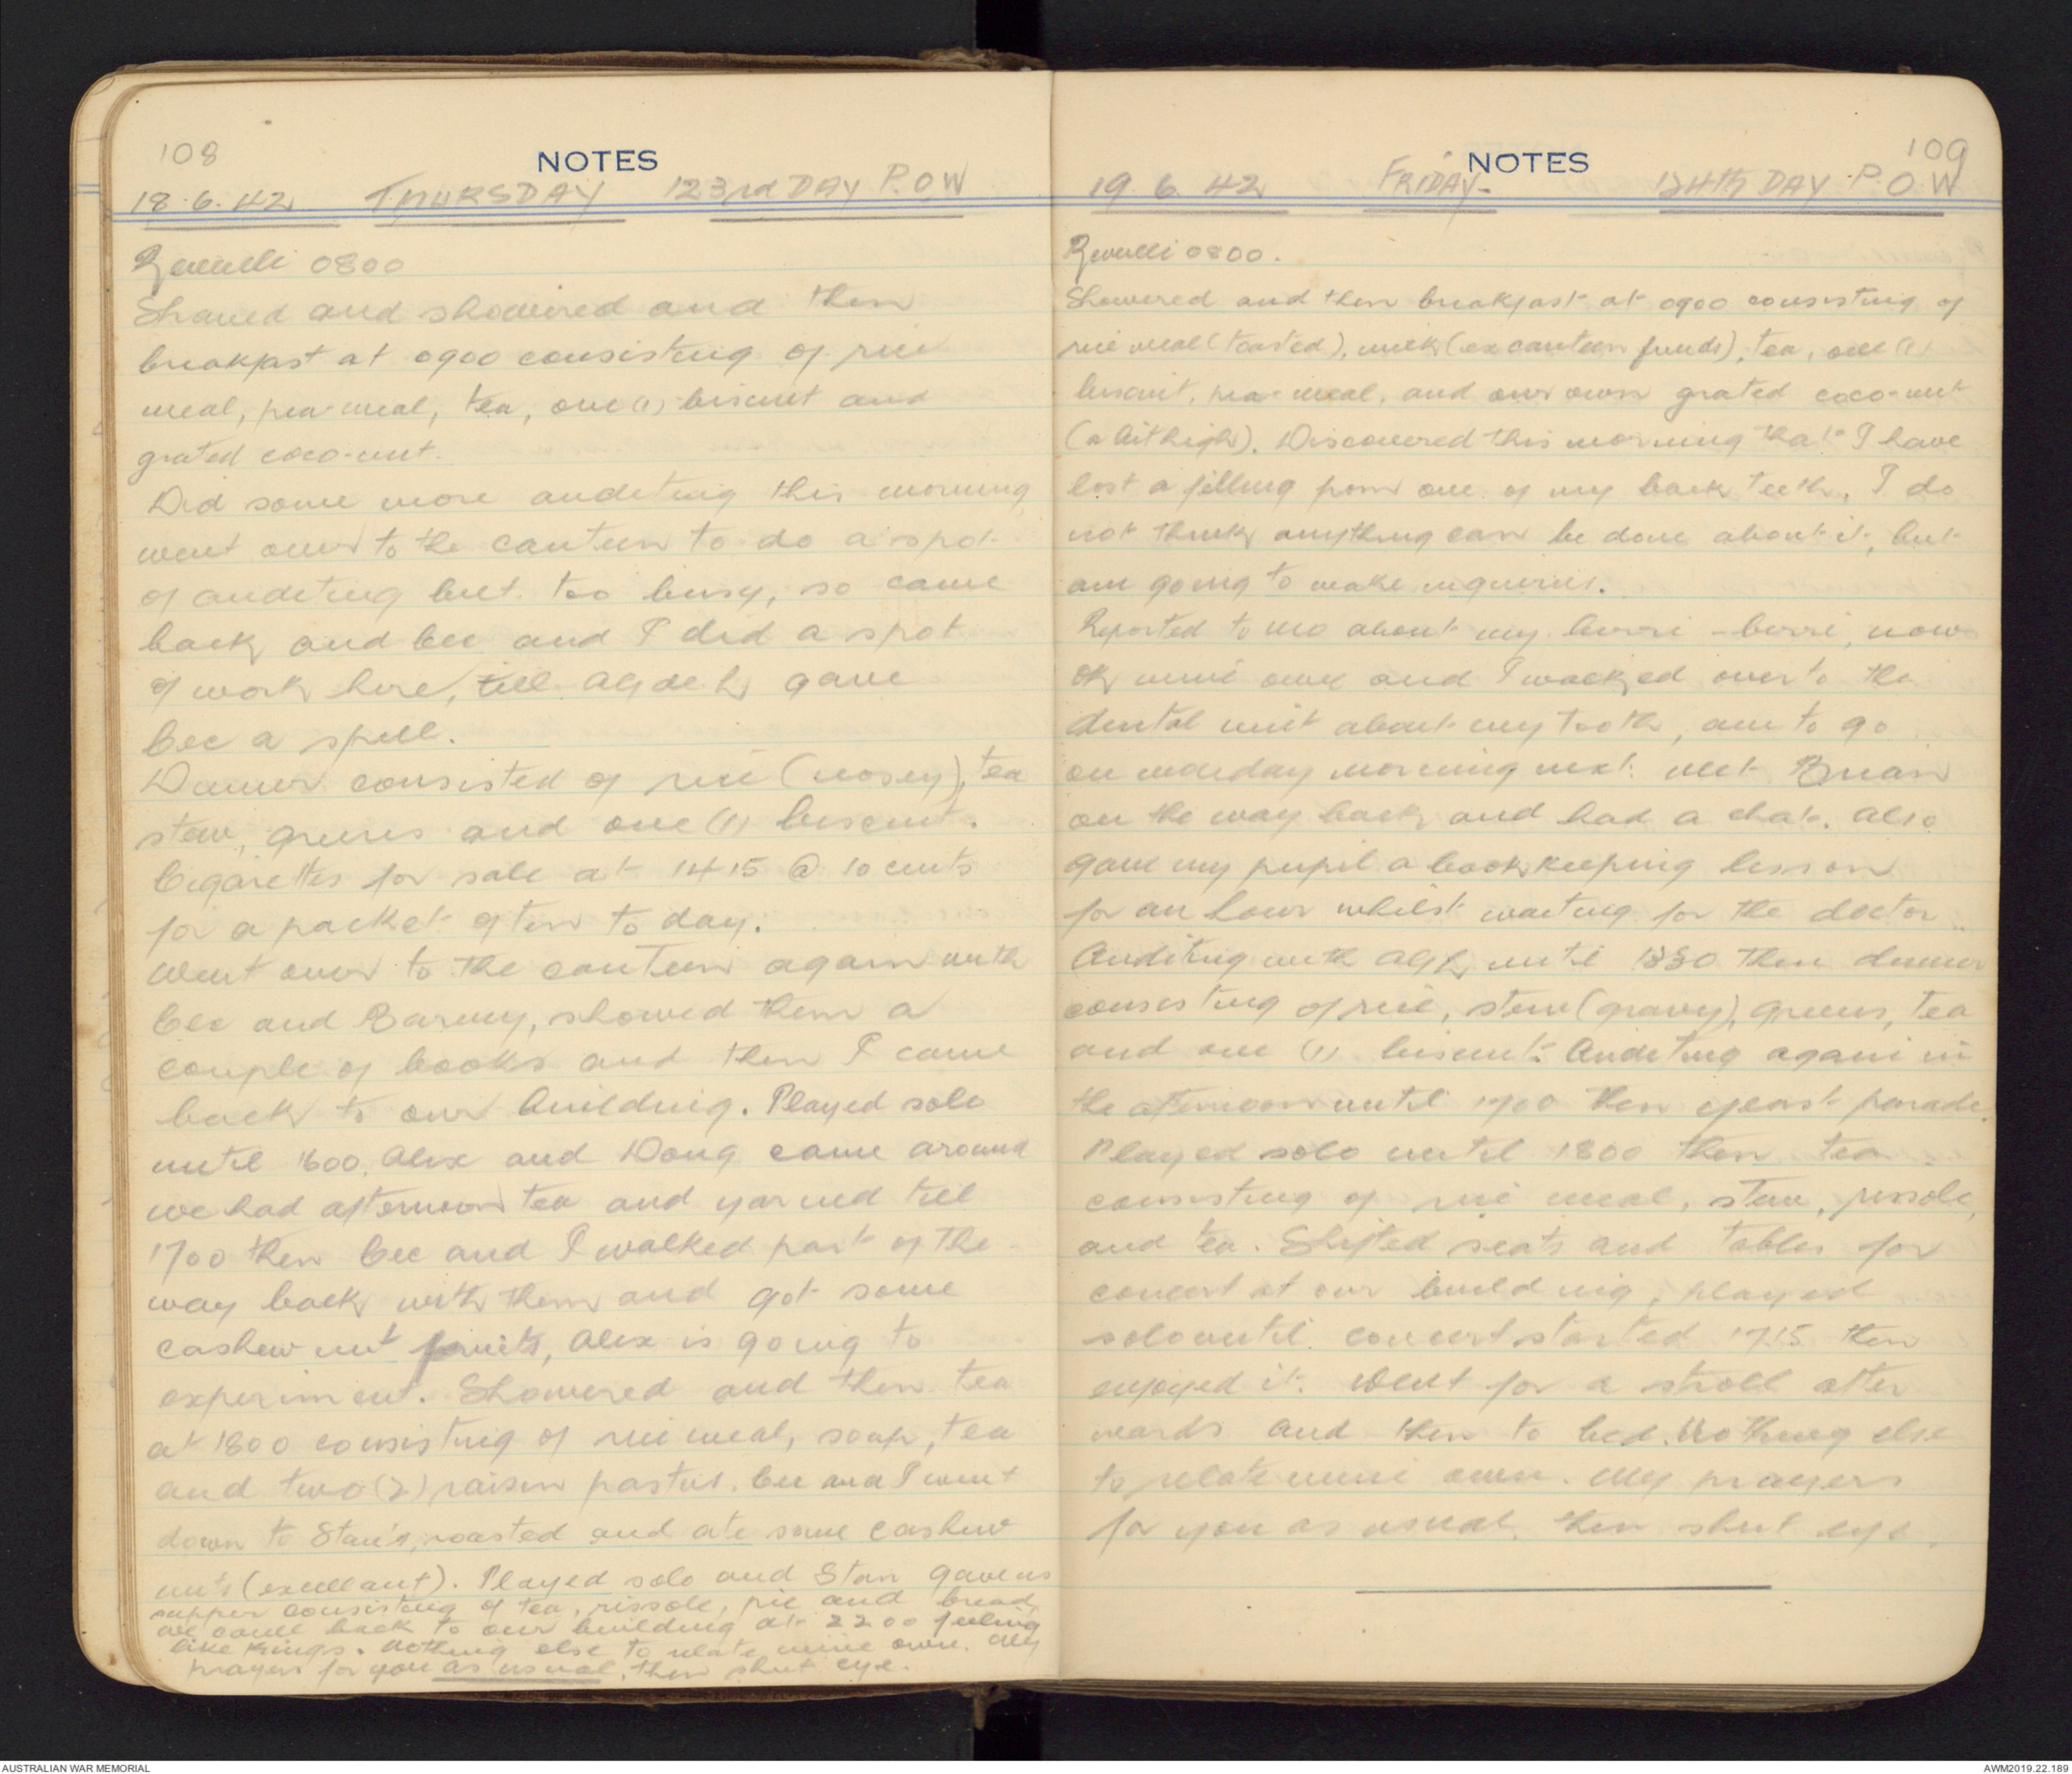 108
NOTES
18.6.42 THURSDAY 123rd DAY P.O.W
Revelli 0800
Shaved and showered and then
breakfast at 0900 consisting of rice
meal, pea-meal, tea, one (1) biscuit and
grated coco-nut.
Did some more auditing this morning,
went over to the canteen to do a spot
of auditing but too busy, so came
back and Cec and I did a spot
of work here, till gave
Cec a spell.
Dinner consisted of rice (nosey), tea
stew, greens and one (1) biscuit.
Cigarettes for sale at 1415 @ 10 cents
for a packet of ten to day.
Went over to the canteen again with
Cec and Barney, showed them a
couple of books and then I came
back to our building. Played solo
until 1600, Alex and Doug came around
we had afternoon tea and yarned till
1700 then Cec and I walked part of the
way back with them and got some
cashew nut fruits, Alex is going to
experiment. Showered and then tea
at 1800 consisting of rice meal, soup, tea
and two (2) raisin pasties. Cec and I went
down to Stan's, roasted and ate some cashew
nuts (excellant). Played solo and Stan gave us
supper consisting of tea, rissole, pie and bread,
we came back to our building at 2200 feeling
like kings. Nothing else to relate mine own. My
prayers for you as usual, then shut eye.
109
NOTES
19.6.42 FRIDAY- 124th DAY P.O.W
Revelli 0800.
Showered and then breakfast at 0900 consisting of
rice meal (toasted), milk (ex canteen funds), tea, one (1)
biscuit, pea-meal, and our own grated coco-nut
(a bit high). Discovered this morning that I have
lost a filling from one of my back teeth, I do
not think anything can be done about it, but
am going to make inquiries.
Reported to MO about my berri-berri, now
Ok mine own and I walked over to the
dental unit about my tooth, am to go
on morning next. Met Brian
on the way back and had a chat. Also
gave my pupil a bookkeeping lesson
for an hour whilst waiting for the doctor
Auditing with until 1330 then dinner
consisting of rice, stew (gravy), greens, tea
and one (1) biscuit. Auditing again in
the afternoon until 1700 then yeast parade.
Played solo until 1800 then tea
consisting of rice meal, stew, rissole,
and tea. Shifted seats and tables for
concert at our building, played
solo until concert started 1715 then
enjoyed it. Went for a stroll after
wards and then to bed. Nothing else
to relate mine own. My prayers
for you as usual, then shut eye.
AUSTRALIAN WAR MEMORIAL
AWM2019.22.189